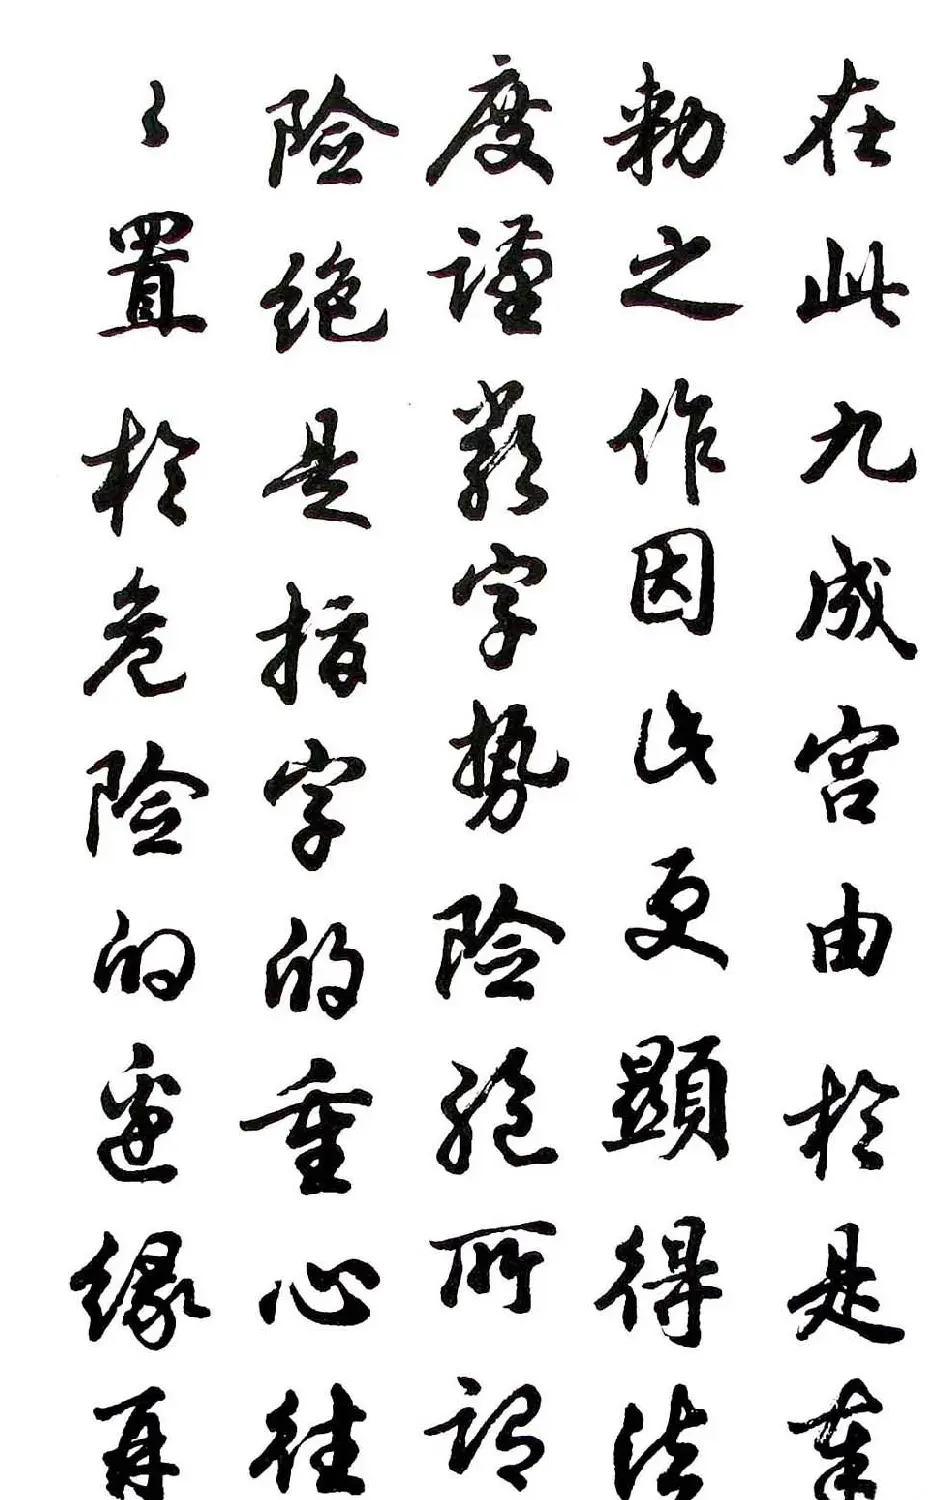 在此九成宫由於是奉
勅之作因此更顯得法
度謹嚴字势险绝所謂
险绝是指字的重心往
々置於危险的边缘再